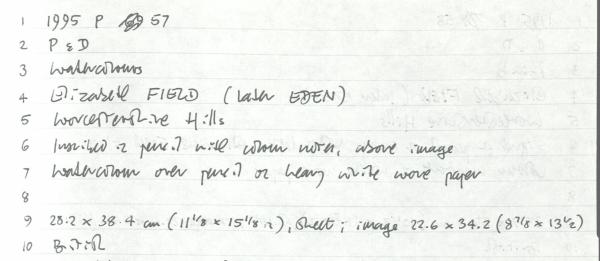 1 1995 P 57
2 P & D
3 Watercolours
4 Elizabeth FIELD (Later EDEN)
5 Worcestershire Hills
6 Inscribed in pencil with colour notes, above image
7 Watercolour over pencil on heavy white wove paper
8
9 28.2 x 38.4 cm (11 1/8 x 15 1/8 in), Sheet; image 22.6 x 34.2 (8 7/8 x 13 1/2)
10 British